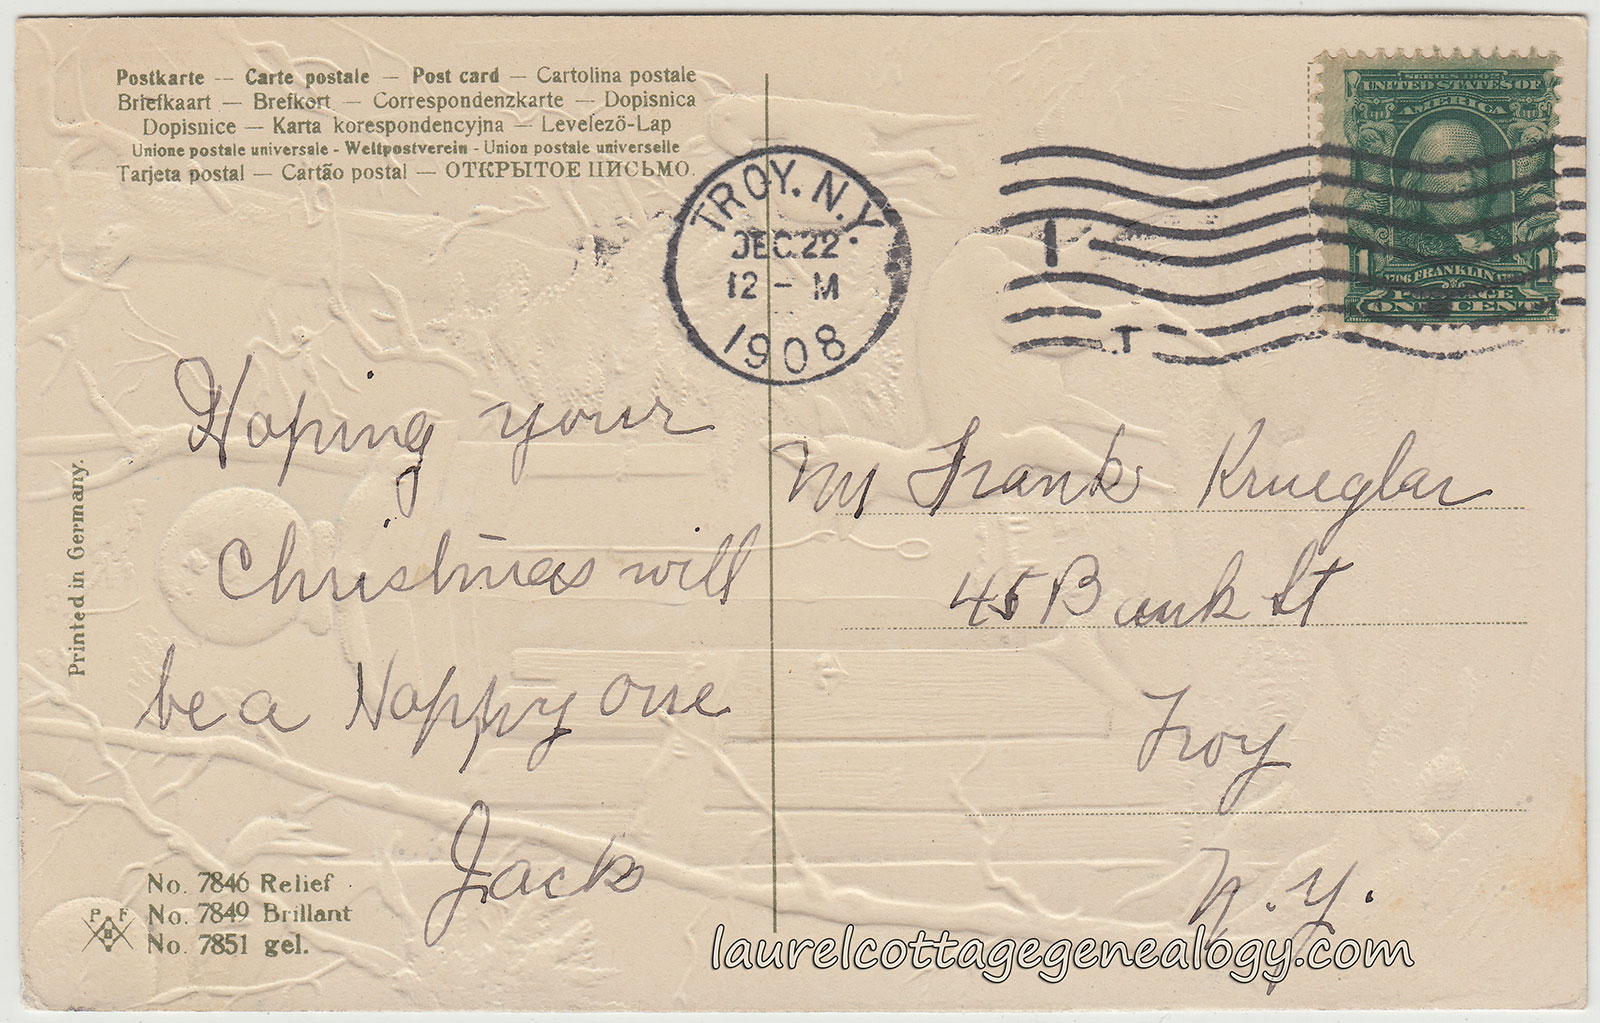 Postkarte — Carte postale — Post card — Cartolina postale
Briefkaart — Brefkort — Correspondenzkarte — Dopisnica
Dopisnice — Karta korespondencyjna — Levelező-Lap
Unione postale universale - Weltpostverein - Union postale universelle
Tarjeta postal — Cartão postal — ОТКРЫТОЕ ПИСЬМО.
TROY. N.Y.
DEC 22
12 - M
1908
1
T
SERIES 1902
UNITED STATES OF
AMERICA
1 FRANKLIN 1
POSTAGE
ONE CENT
Hoping your
Christmas will
be a Happy one
Jack
Mr Frank Krueglar
45 Bank St
Troy
N.Y.
Printed in Germany.
P F
B
No. 7846 Relief
No. 7849 Brillant
No. 7851 gel.
laurelcottagegenealogy.com